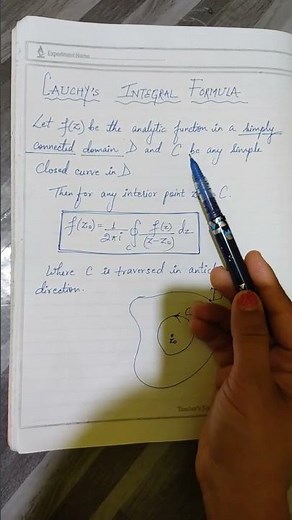 Experiment Name
CAUCHY'S INTEGRAL FORMULA
Let f(z) be the analytic function in a simply
connected domain D and C be any simple
closed curve in D.
Then for any interior point C.
f(z₀) = 1/2πi ∮_C f(z)/(z-z₀) dz
Where C is traversed in
direction.
D
C
z₀
Teacher's